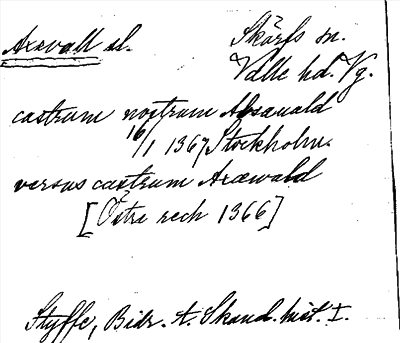 Axevall sl.
Skärfs sn.
Valle hd. Vg.
castrum nostrum Axauald
16/1 1367 Stockholm.
versus castrum Axæwald
[Östra rech 1366]
Styffe, Bidr. t. Skand. hist. I.